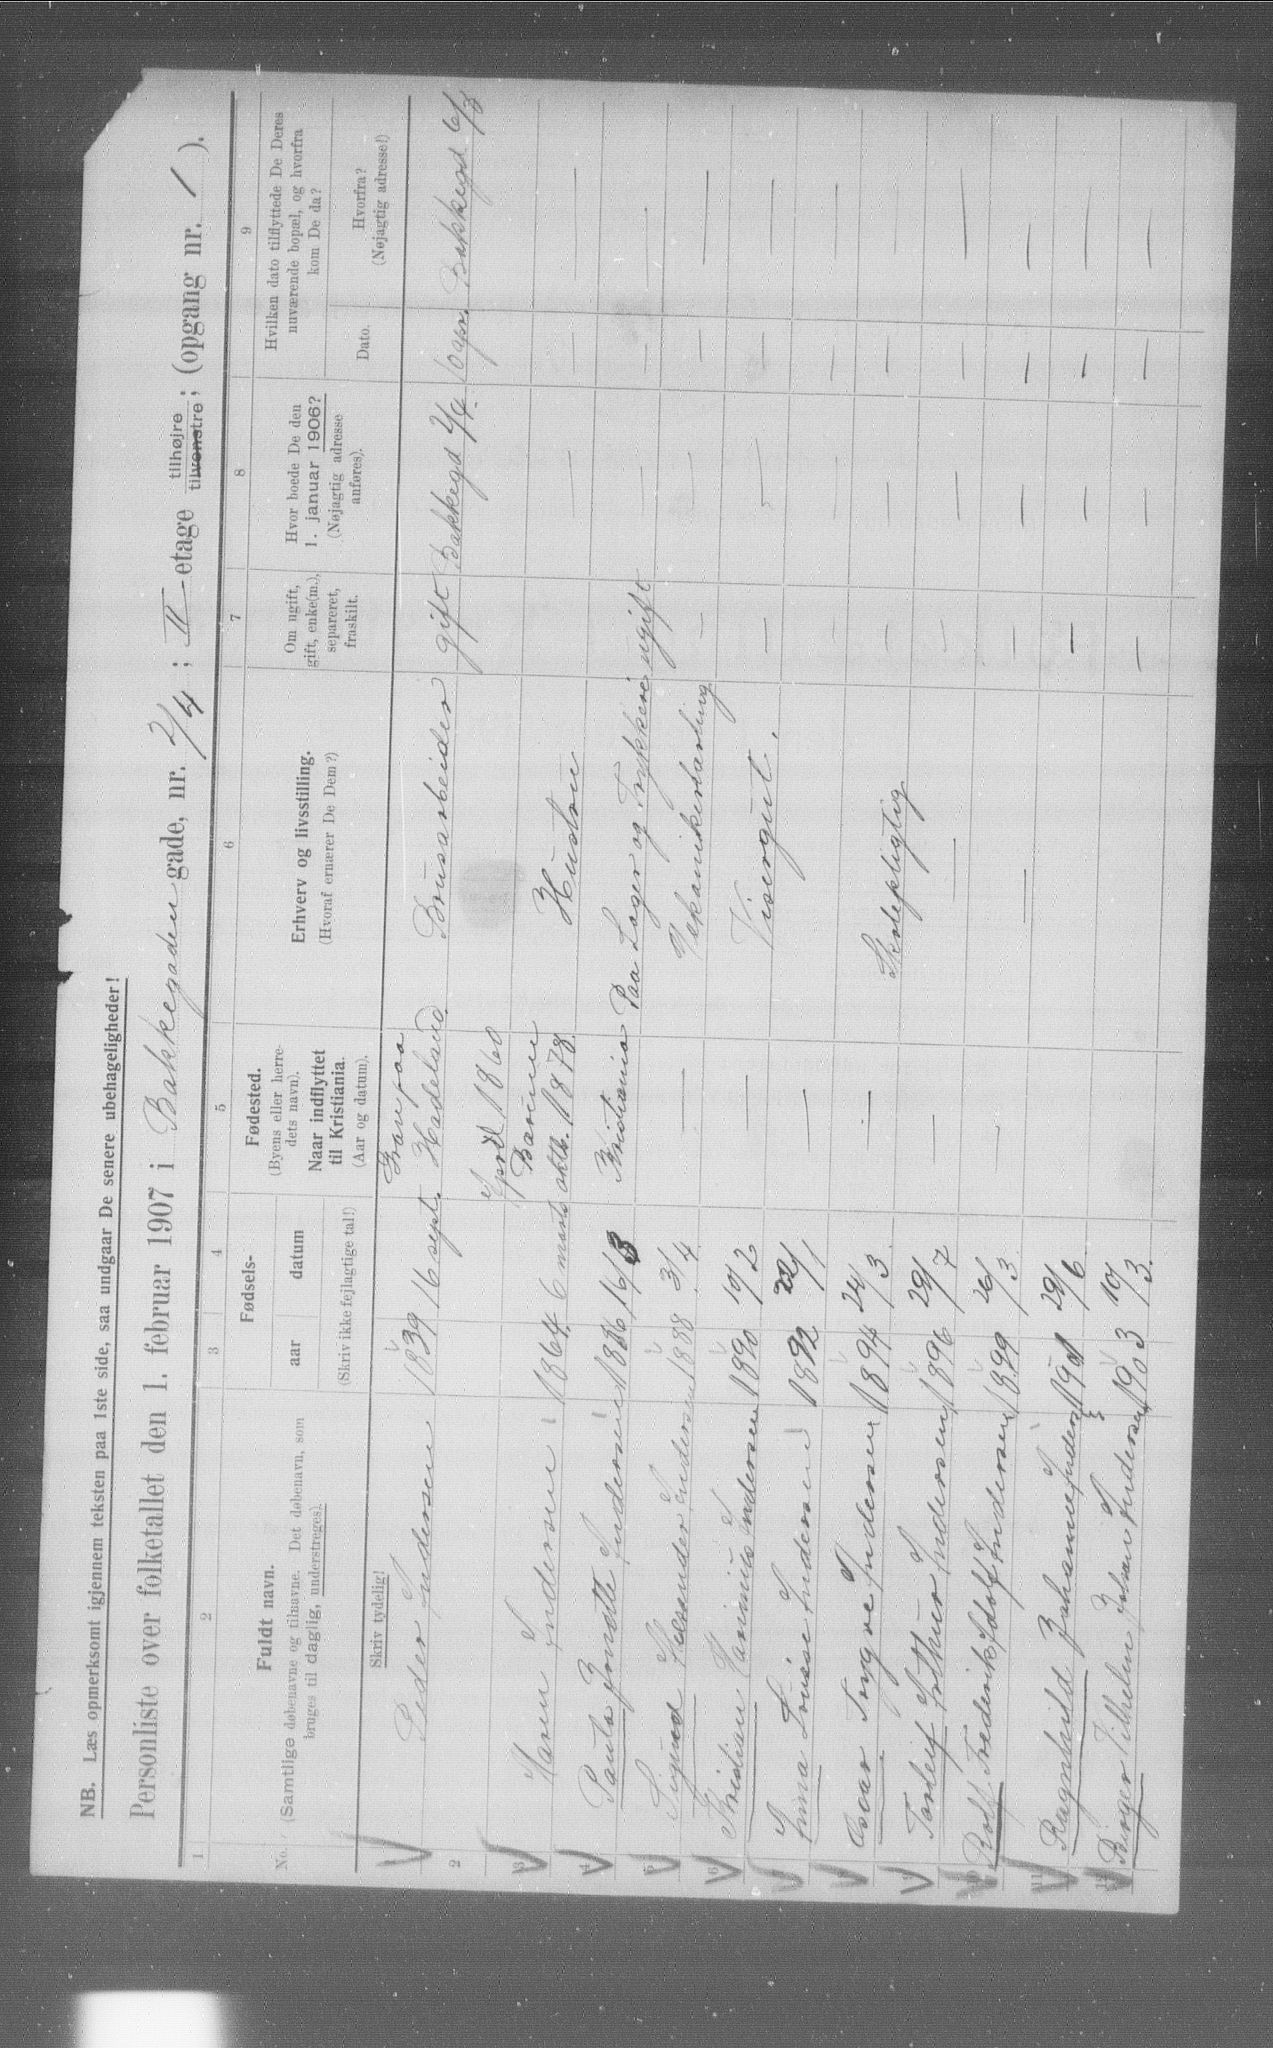 NB. Læs opmerksomt igjennem teksten paa 1ste side, saa undgaar De senere ubehageligheder!
Personliste over folketallet den 1. februar 1907 i Bakkegaden gade, nr. 2/4 ; II etage tilhøjre tilvenstre; (opgang nr. 1 ).
1 2 3 4 5 6 7 8 9
No. Fuldt navn.
(Samtlige døbenavne og tilnavne. Det døbenavn, som
bruges til daglig, understreges).
Fødsels-
aar datum
(Skriv ikke fejlagtige tal!)
Fødested.
(Byens eller herre-
dets navn).
Naar indflyttet
til Kristiania.
(Aar og datum).
Erhverv og livsstilling.
(Hvoraf ernærer De Dem?)
Om ugift,
gift, enke(m.),
separeret,
fraskilt.
Hvor boede De den
1. januar 1906?
(Nøjagtig adresse
anføres).
Hvilken dato tilflyttede De Deres
nuværende bopæl, og hvorfra
kom De da?
Dato.
Hvorfra?
(Nøjagtig adresse!)
Skriv tydelig!
Peder Andersen 1839 16 sept. Gran paa Hadeland Brusarbeider gift Bakkegd 2/4. 10 apr. Bakkegd 6/8
2 April 1860
3 Maren Andersen 1864 6 marts Bærum oktb. 1878 Hustru — — —
4 Paula Andersen 1886 16/3 Kristiania Paa Lager og Trykkeri ugift — — —
5 Sigurd Alexander Andersen 1888 3/4 — Mekanikerlærling — — — —
6 Kristian Andersen 1890 10/2 — Visergut. — — — —
Anna Lovise Andersen 1892 22/1 — — — — —
Oscar Yngve Andersen 1894 24/3 — Skolepligtig — — — —
Torleif Arthur Andersen 1896 29/7 — — — — — —
10 Rolf Frederik Adolf Andersen 1899 26/3 — — — — —
11 Ragnhild Johanne Andersen 1901 29/6 — — — —
12 Birger Vilhelm Johan Andersen 1903 10/3. — — — —